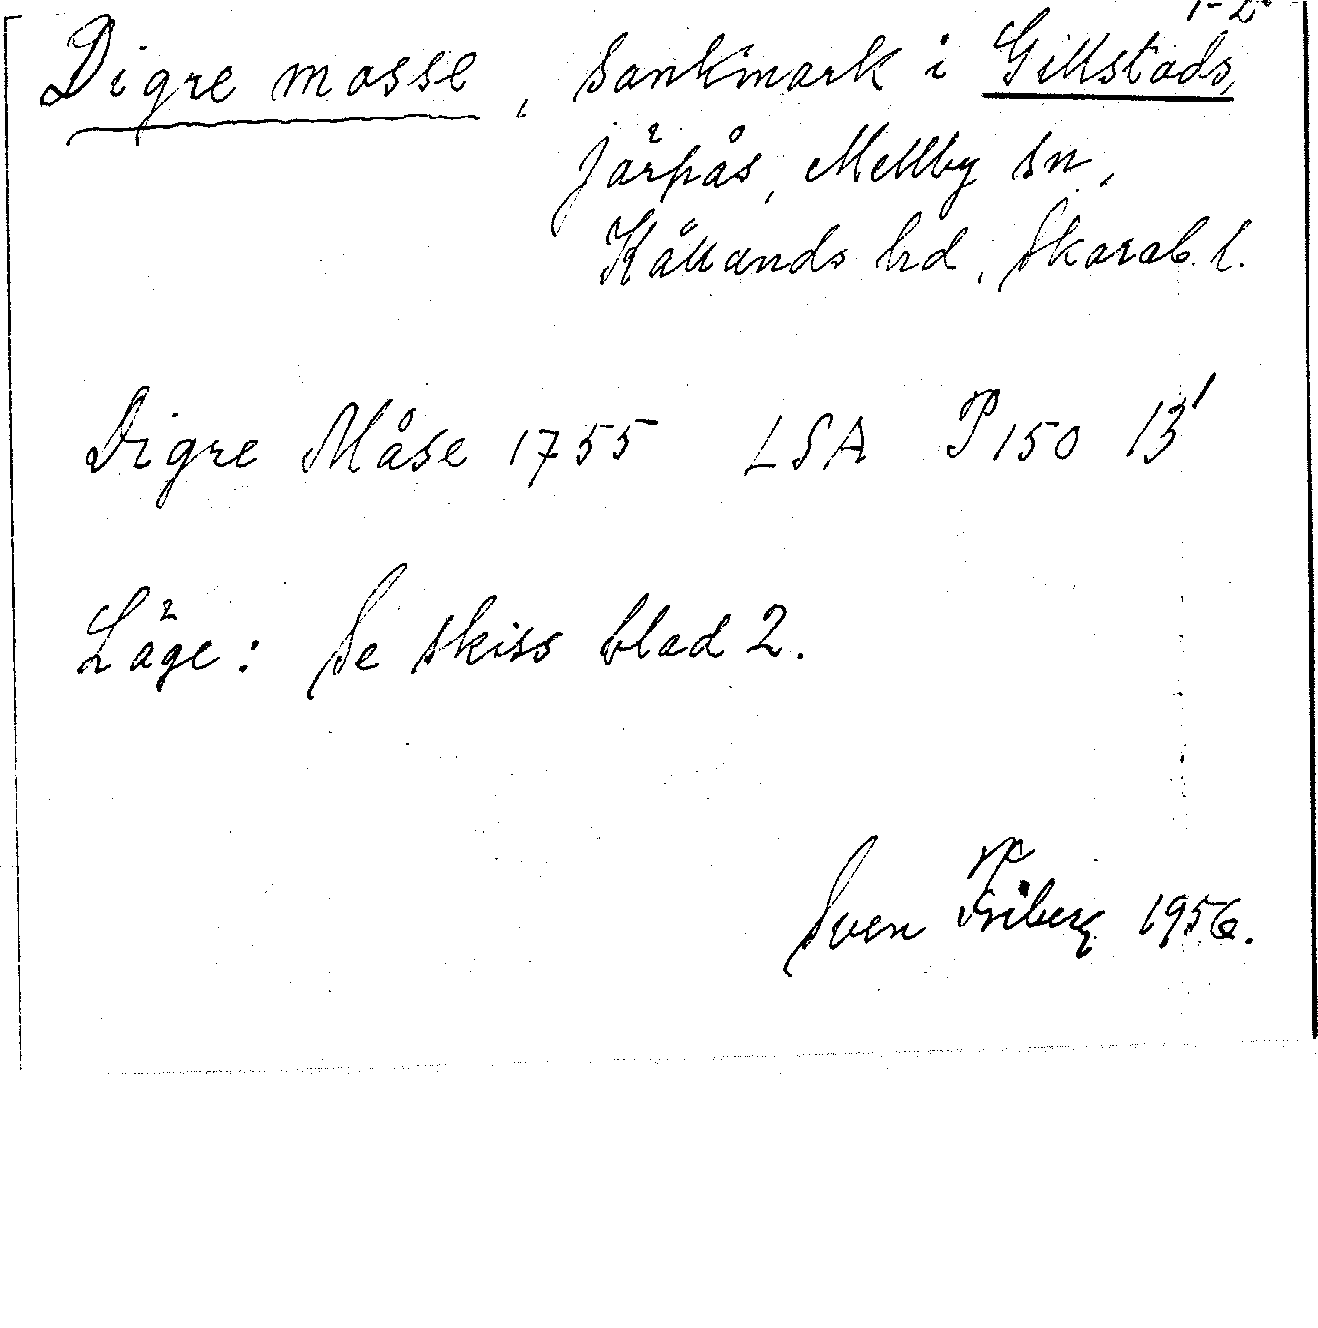 1-2.
Digre mosse, sankmark i Gillstads,
Järpås, Mellby sn,
Kållands hd, Skarab. l.
Digre Måse 1755 LSA P150 13¹
Läge: Se skiss blad 2.
Sven Friberg 1956.